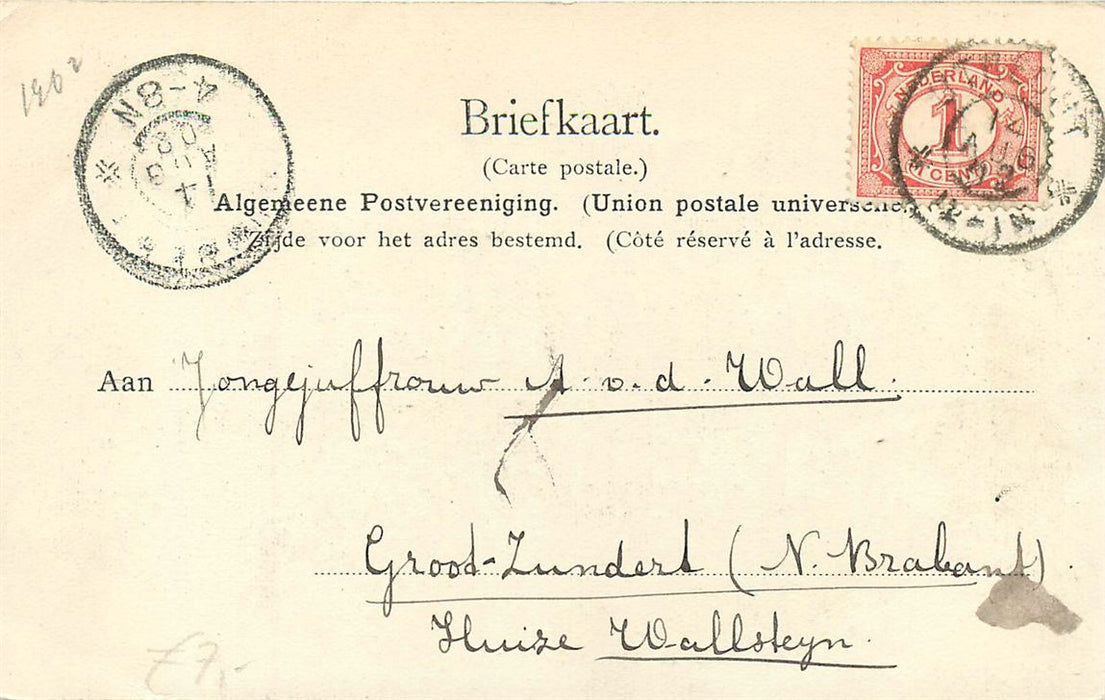 1902
4-8N
14
AUG
02
NEDERLAND
1
CENT
Briefkaart.
(Carte postale.)
Algemeene Postvereeniging. (Union postale universelle.
Zijde voor het adres bestemd. (Côté réservé à l'adresse.
Aan Jongejuffrouw A. v. d. Wall.
Groot-Zundert (N. Brabant)
Huize Wallsteyn.
£7,-